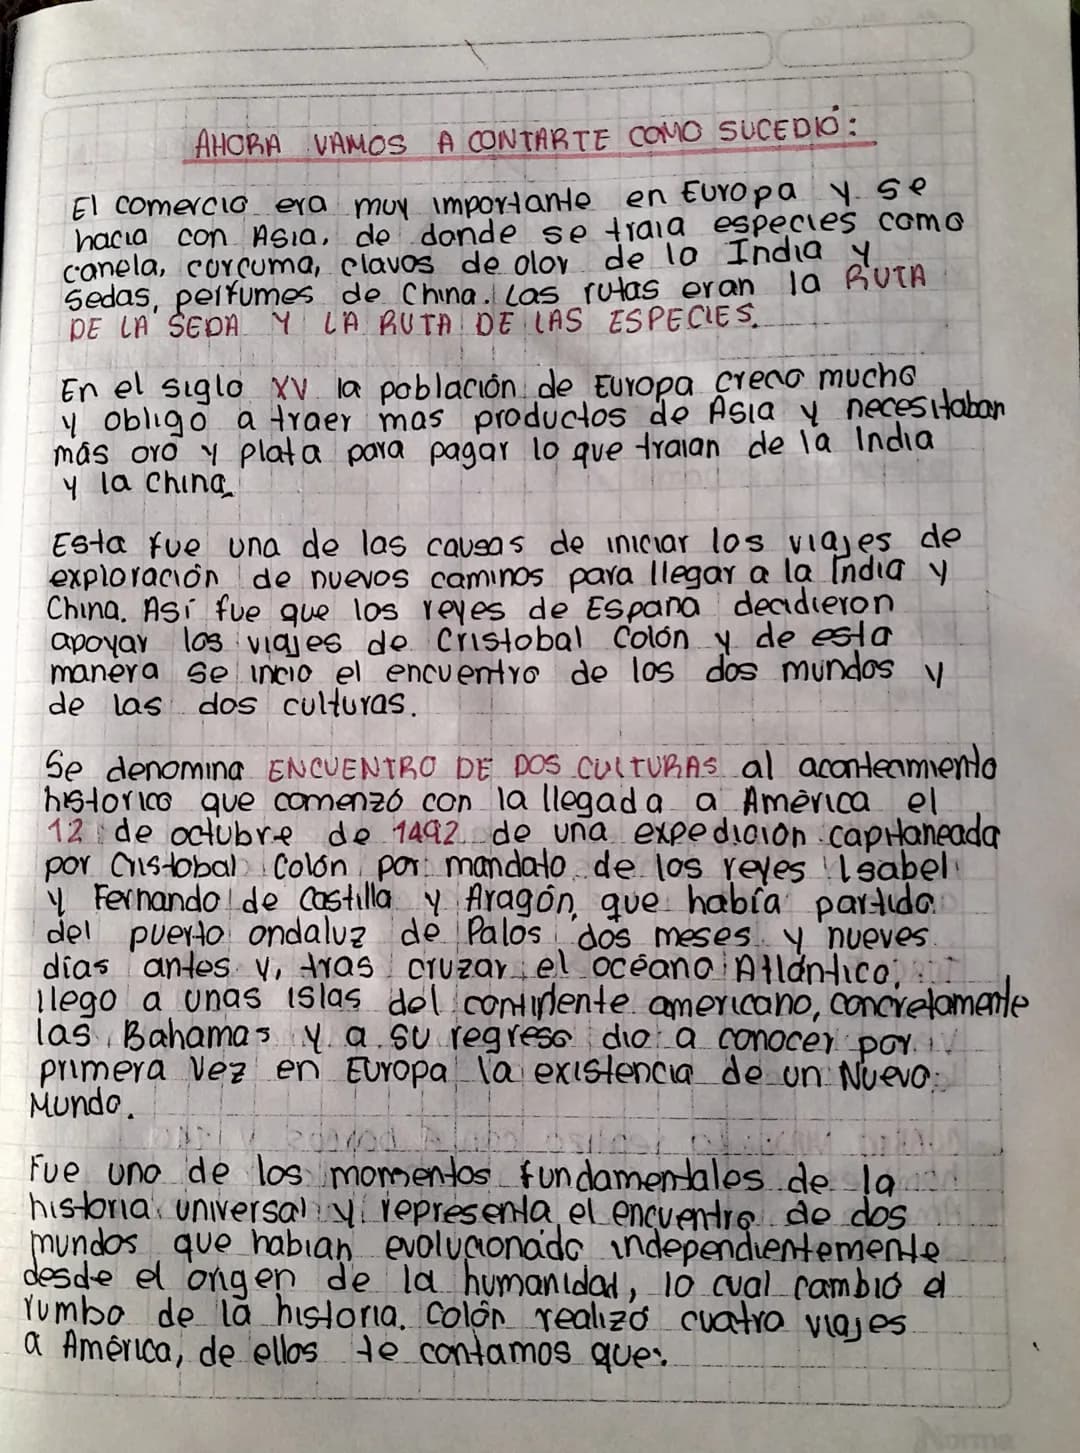 AHORA VAMOS A CONTARTE COMO SUCEDIÓ:
El comercio era muy importante en Europa y se
hacia con Asia, de donde se traia especies como
canela, curcuma, clavos de olor de la India y
sedas, perfumes de China. Las rutas eran la RUTA
DE LA SEDA Y LA RUTA DE LAS ESPECIES.
En el siglo XV la población de Europa crecio mucho
y obligo a traer mas productos de Asia y necesitaban
más oro y plata para pagar lo que traian de la India
y la China
Esta fue una de las causas de iniciar los viajes de
exploración de nuevos caminos para llegar a la India y
China. Así fue que los reyes de España decidieron
apoyar los viajes de Cristobal Colón y de esta
manera se incio el encuentro de los dos mundos y
de las dos culturas.
Se denomina ENCUENTRO DE DOS CULTURAS al acontecimiento
historico que comenzó con la llegada a América el
12 de octubre de 1492 de una expedición capitaneada
por Cristobal Colón por mandato de los reyes Isabel
y Fernando de Castilla y Aragón, que había partido
del puerto andaluz de Palos dos meses y nueves
días antes y, tras cruzar el océano Atlántico,
llego a unas islas del continente americano, concretamente
las Bahamas y a su regreso dio a conocer por
primera vez en Europa la existencia de un Nuevo
Mundo.
Fue uno de los momentos fundamentales de la
historia universal y representa el encuentro de dos
mundos que habian evolucionado independientemente
desde el origen de la humanidad, lo cual cambió el
rumbo de la historia. Colón realizó cuatro viajes
a América, de ellos te contamos que:
Norma